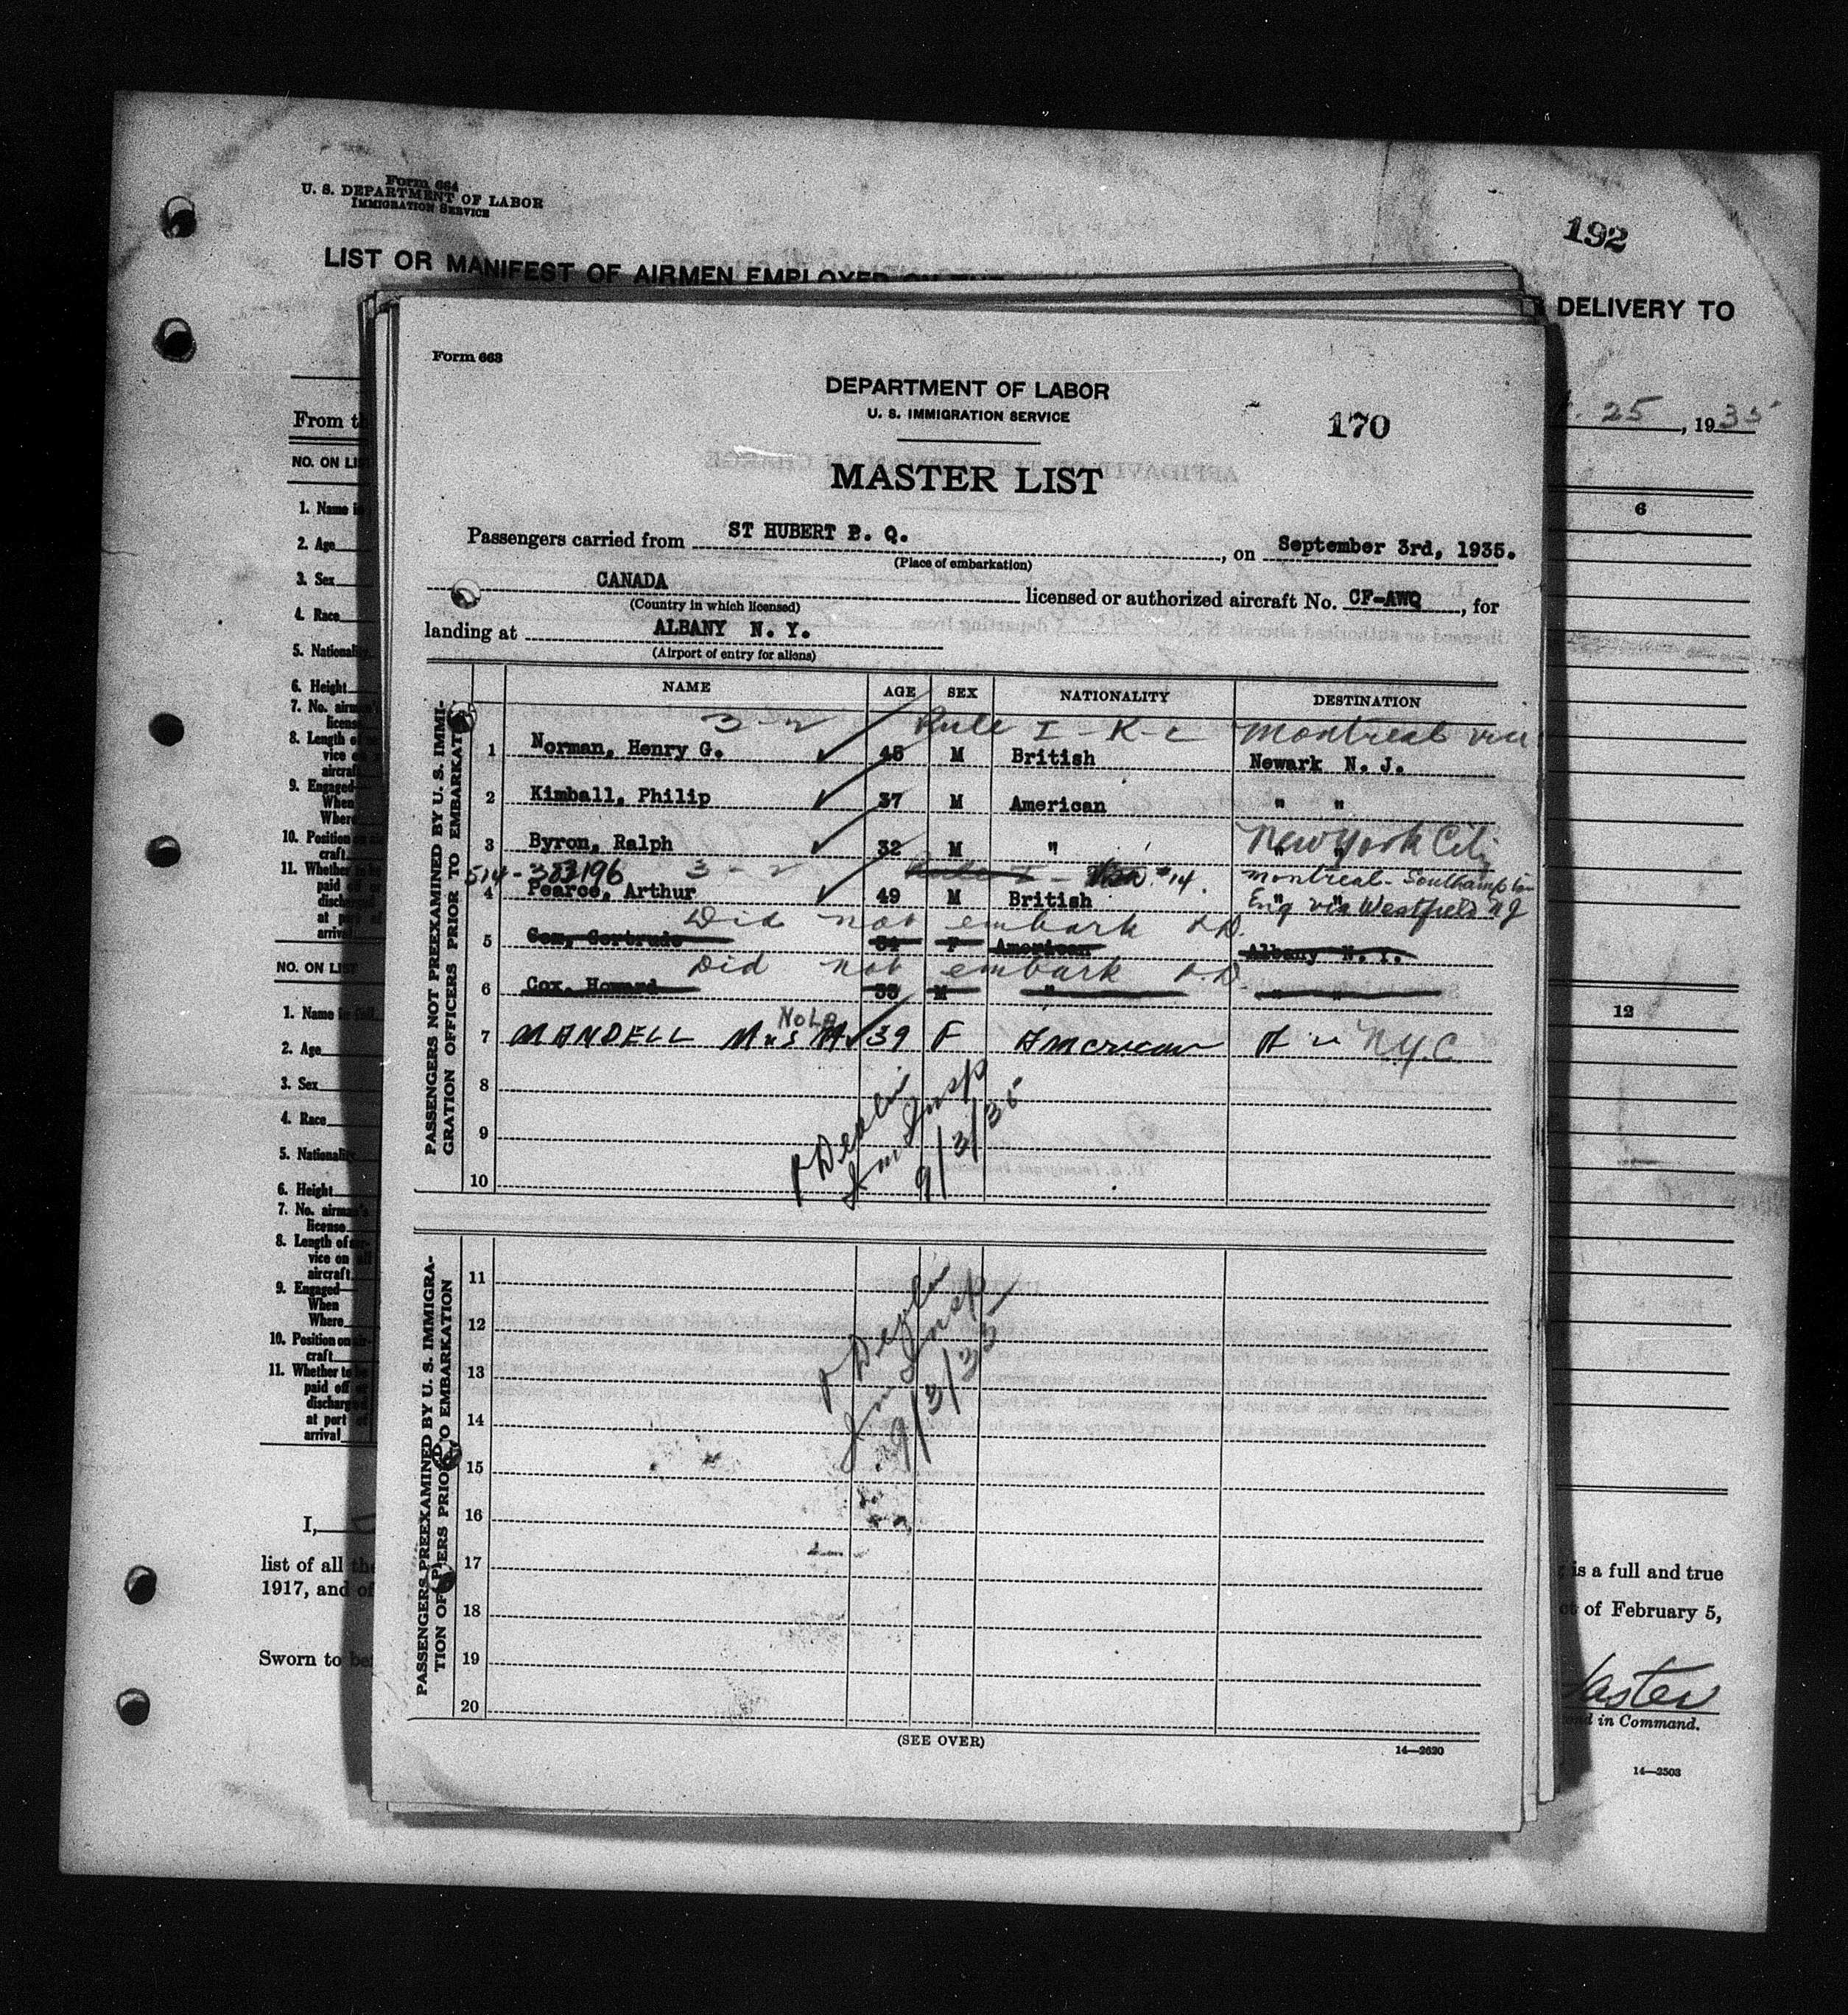 Form 664
U. S. DEPARTMENT OF LABOR
IMMIGRATION SERVICE
192
LIST OR MANIFEST OF AIRMEN EMPLOYED ON THE
DELIVERY TO
25, 1935
From th
NO. ON LIS
6
1. Name i
2. Age
3. Sex
4. Race
5. Nationality
6. Height
7. No. airman's
license
8. Length of
vice on
aircraft
9. Engaged
When
Where
10. Position on
craft
11. Whether to be
paid off or
discharged
at port of
arrival
NO. ON LIST
12
1. Name in full
2. Age
3. Sex
4. Race
5. Nationality
6. Height
7. No. airman's
license
8. Length of
vice on all
aircraft
9. Engaged
When
Where
10. Position on air-
craft
11. Whether to be
paid off or
discharged
at port of
arrival
I,
list of all the
is a full and true
1917, and of
of February 5,
Sworn to bef
in Command.
14—2503
Form 663
DEPARTMENT OF LABOR
U. S. IMMIGRATION SERVICE
170
MASTER LIST
Passengers carried from ST HUBERT P. Q., on September 3rd, 1935.
(Place of embarkation)
CANADA licensed or authorized aircraft No. CF-AWQ, for
(Country in which licensed)
landing at ALBANY N. Y.
(Airport of entry for aliens)
PASSENGERS NOT PREEXAMINED BY U. S. IMMI-
GRATION OFFICERS PRIOR TO EMBARKATION
NAME AGE SEX NATIONALITY DESTINATION
3-2 Rule I-K-2 Montreal via
1 Norman, Henry G. 45 M British Newark N. J.
2 Kimball, Philip 37 M American " "
3 Byron, Ralph 32 M " New York City
514-383196 3-2 Rule I - #14. Montreal - Southampton
4 Pearce, Arthur 49 M British Eng via Westfield NJ
Did not embark
5 Cox, Gertrude 34 F American Albany N. Y.
Did not embark
6 Cox, Howard 35 M " " "
Nola
7 MANDELL Mrs 39 F American N.Y.C
8
9
10
Imm Insp
9/3/35
PASSENGERS PREEXAMINED BY U. S. IMMIGRA-
TION OFFICERS PRIOR TO EMBARKATION
11
12
13
14
15
16
17
18
19
20
Imm Insp
9/3/35
(SEE OVER)
14—2620